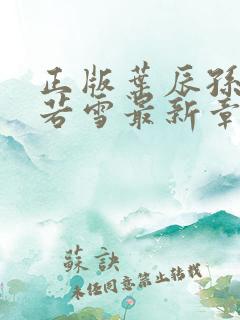 正版葉辰孫
若雪最新章
蘇訣
未任同意禁止转载